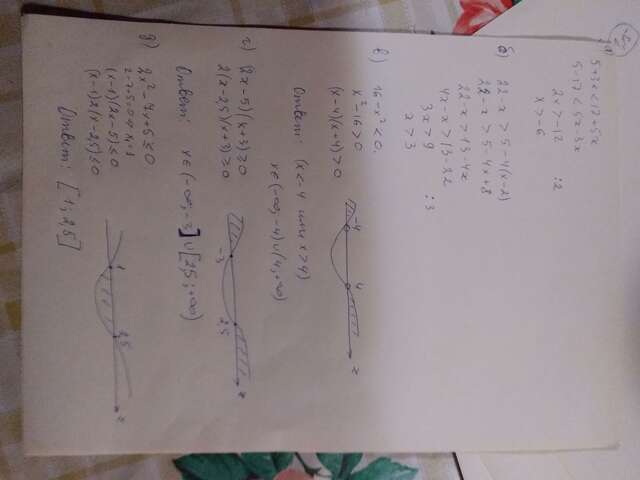 5+3x<17+5x
5-17<5x-3x
2x>-12 :2
x>-6
б) 22-x>5-4(x-2)
22-x>5-4x+8
22-x>13-4x
4x-x>13-22
3x>9 :3
x>3
в) 16-x²<0.
x²-16>0
(x-4)(x+4)>0
-4 4 x
Ответ: (x<-4 или x>4)
x∈(-∞;-4)∪(4;+∞)
г) (2x-5)(x+3)≥0
2(x-2,5)(x+3)≥0
-3 2,5 x
Ответ: x∈(-∞;-3]∪[2,5;+∞)
д) 2x²-7x+5≤0
2-7+5=0 => x=1
(x-1)(2x-5)≤0
(x-1)2(x-2,5)≤0
1 2,5 x
Ответ: [1; 2,5]